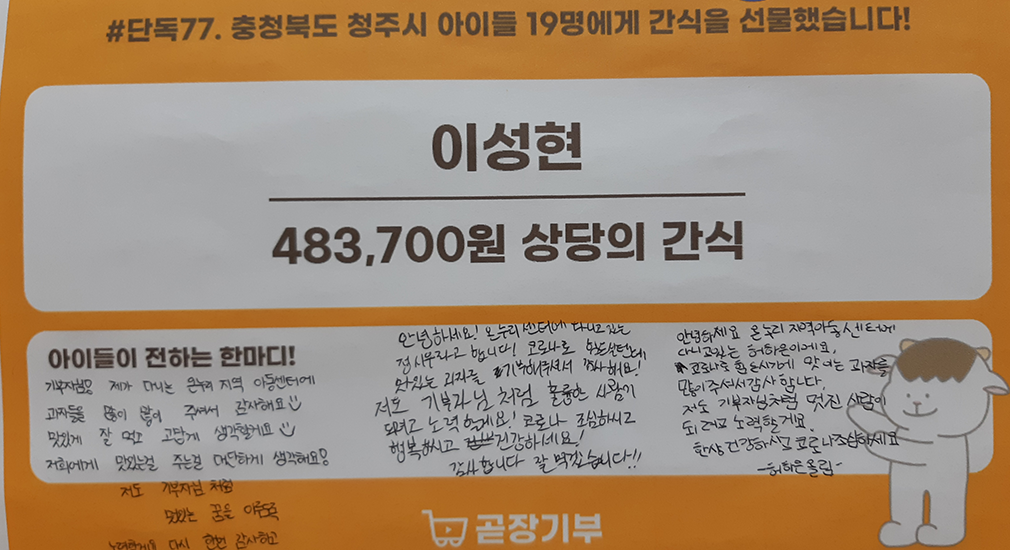 #단독77. 충청북도 청주시 아이들 19명에게 간식을 선물했습니다!
이성현
483,700원 상당의 간식
아이들이 전하는 한마디!
기부자님 제가 다니는 온누리 지역 아동센터에
과자들을 많이 많이 주셔서 감사해요
맛있게 잘 먹고 고맙게 생각할게요
저희에게 맛있는걸 주는걸 대단하게 생각해요
저도 기부자님 처럼
멋있는 꿈을 이루도록
다시 한번 감사하고
안녕하세요! 온누리센터에 다니고있는
라고 합니다! 코로나로 힘든
맛있는 과자를 기부해주셔서 감사해요!
저도 기부자님처럼 훌륭한 사람이
되려고 노력할게요! 코로나 조심하시고
행복하시고 건강하세요!
감사합니다 잘 먹겠습니다!!
안녕하세요 온누리 지역아동센터에
다니고있는 허하은이에요.
코로나로 힘든시기에 맛있는 과자를
많이주셔서감사합니다.
저도 기부자님처럼 멋진 사람이
되려고 노력할게요.
항상건강하시고코로나조심하세요
-허하은올림-
곧장기부